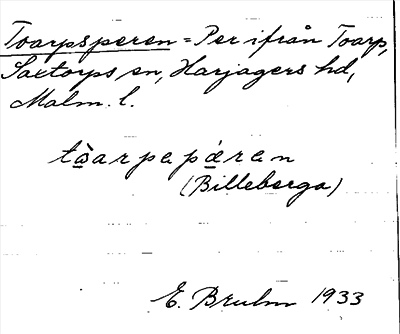 Toarpsperen = Per ifrån Toarp,
Saxtorps sn, Harjagers hd,
Malm. l.
tòarpapǽran
(Billeberga)
E. Bruhn 1933